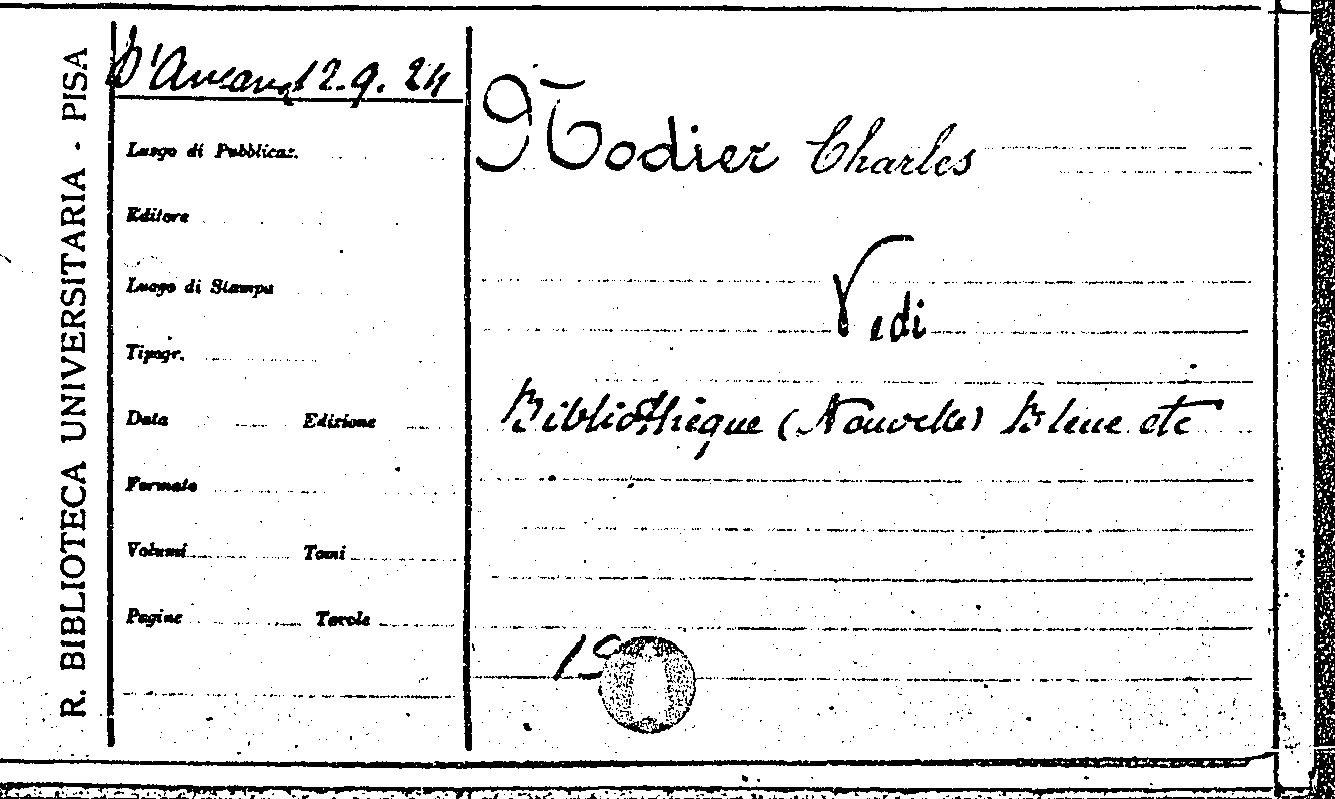 R. BIBLIOTECA UNIVERSITARIA - PISA
D'Ancona 12. 9. 24
Luogo di Pubblicaz.
Editore
Luogo di Stampa
Tipogr.
Data Edizione
Formato
Volumi Tomi
Pagine Tavole
Nodier Charles
Vedi
Bibliothèque (Nouvelle) Bleue etc